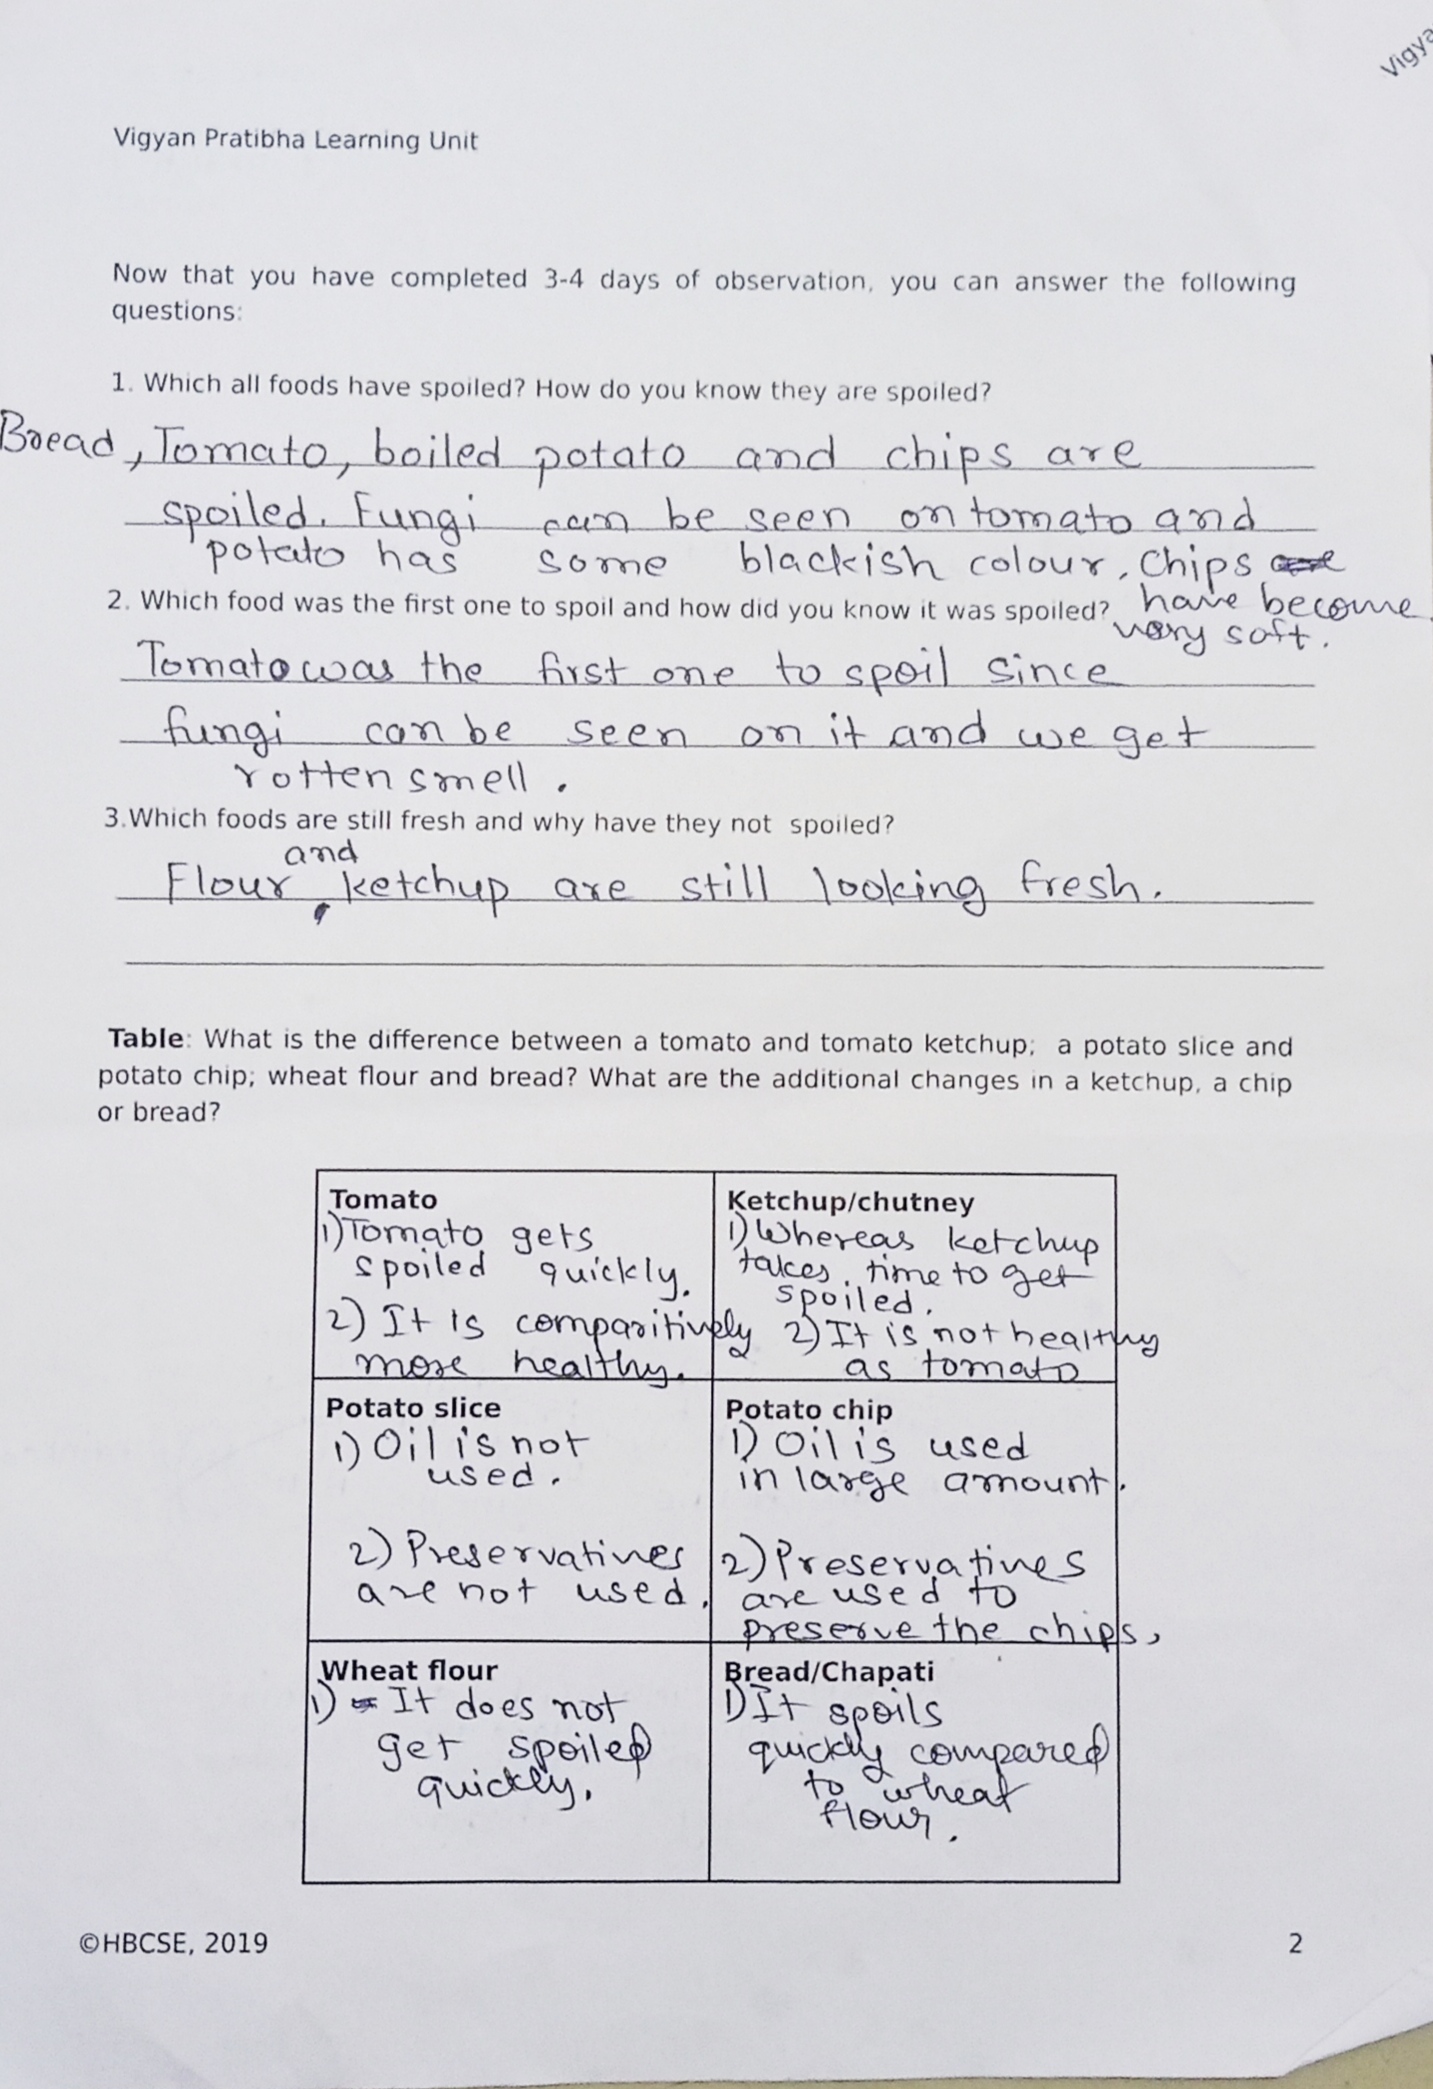 Vigya
Vigyan Pratibha Learning Unit
Now that you have completed 3-4 days of observation, you can answer the following
questions:
1. Which all foods have spoiled? How do you know they are spoiled?
Bread, Tomato, boiled potato and chips are
spoiled. Fungi can be seen on tomato and
potato has some blackish colour. Chips
have become
very soft.
2. Which food was the first one to spoil and how did you know it was spoiled?
Tomato was the first one to spoil since
fungi can be seen on it and we get
rotten smell.
3.Which foods are still fresh and why have they not spoiled?
Flour and ketchup are still looking fresh.
Table: What is the difference between a tomato and tomato ketchup; a potato slice and
potato chip; wheat flour and bread? What are the additional changes in a ketchup, a chip
or bread?
Tomato
1) Tomato gets
spoiled quickly.
2) It is comparitively
more healthy.
Ketchup/chutney
1) Whereas ketchup
takes time to get
spoiled.
2) It is not healthy
as tomato
Potato slice
1) Oil is not
used.
2) Preservatives
are not used.
Potato chip
1) Oil is used
in large amount.
2) Preservatives
are used to
preserve the chips,
Wheat flour
1) It does not
get spoiled
quickly.
Bread/Chapati
1) It spoils
quickly compared
to wheat
flour.
©HBCSE, 2019
2